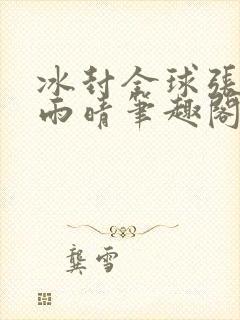 冰封全球張
雨晴筆趣閣
龔雪